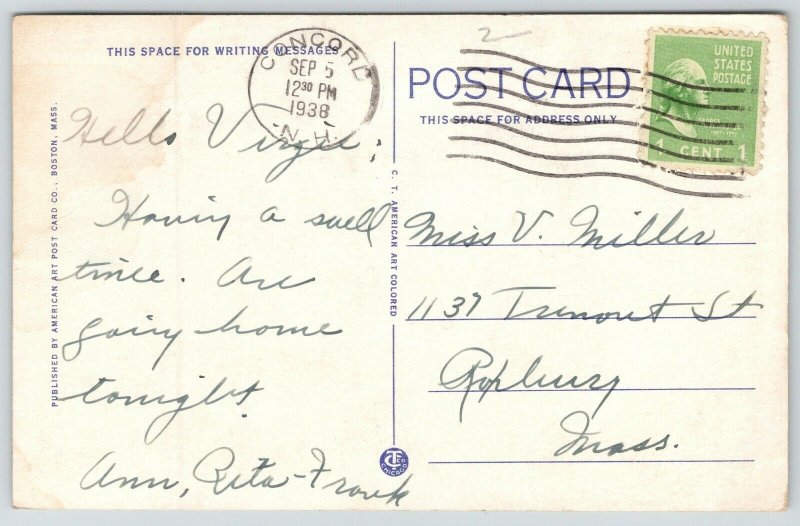 THIS SPACE FOR WRITING MESSAGES
CONCORD
SEP 5
12 30 PM
1938
N.H.
2
POST CARD
THIS SPACE FOR ADDRESS ONLY
UNITED
STATES
POSTAGE
1 CENT 1
Hello Virgie;
Having a swell
time. Are
going home
tonight.
Ann, Rita-Frank
Miss V. Miller
1137 Tremont St
Roxbury
Mass.
PUBLISHED BY AMERICAN ART POST CARD CO., BOSTON, MASS.
C. T. AMERICAN ART COLORED
CHICAGO